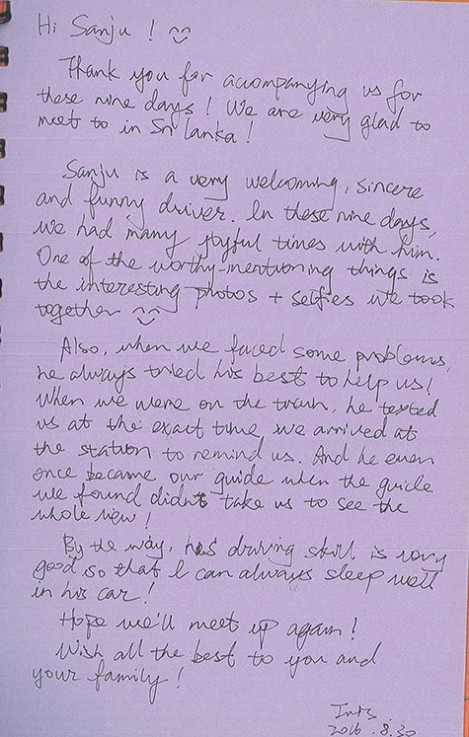 Hi Sanju !
Thank you for accompanying us for
these nine days ! We are very glad to
meet to in Sri lanka !
Sanju is a very welcoming, sincere
and funny driver. In these nine days,
we had many joyful times with him.
One of the worthy-mentioning things is
the interesting photos + selfies we took
together
Also, when we faced some problems,
he always tried his best to help us !
When we were on the train, he texted
us at the exact time we arrived at
the station to remind us. And he even
once became our guide when the guide
we found didn't take us to see the
whole view !
By the way, his driving skill is very
good so that I can always sleep well
in his car !
Hope we'll meet up again !
Wish all the best to you and
your family !
2016 . 8 . 30